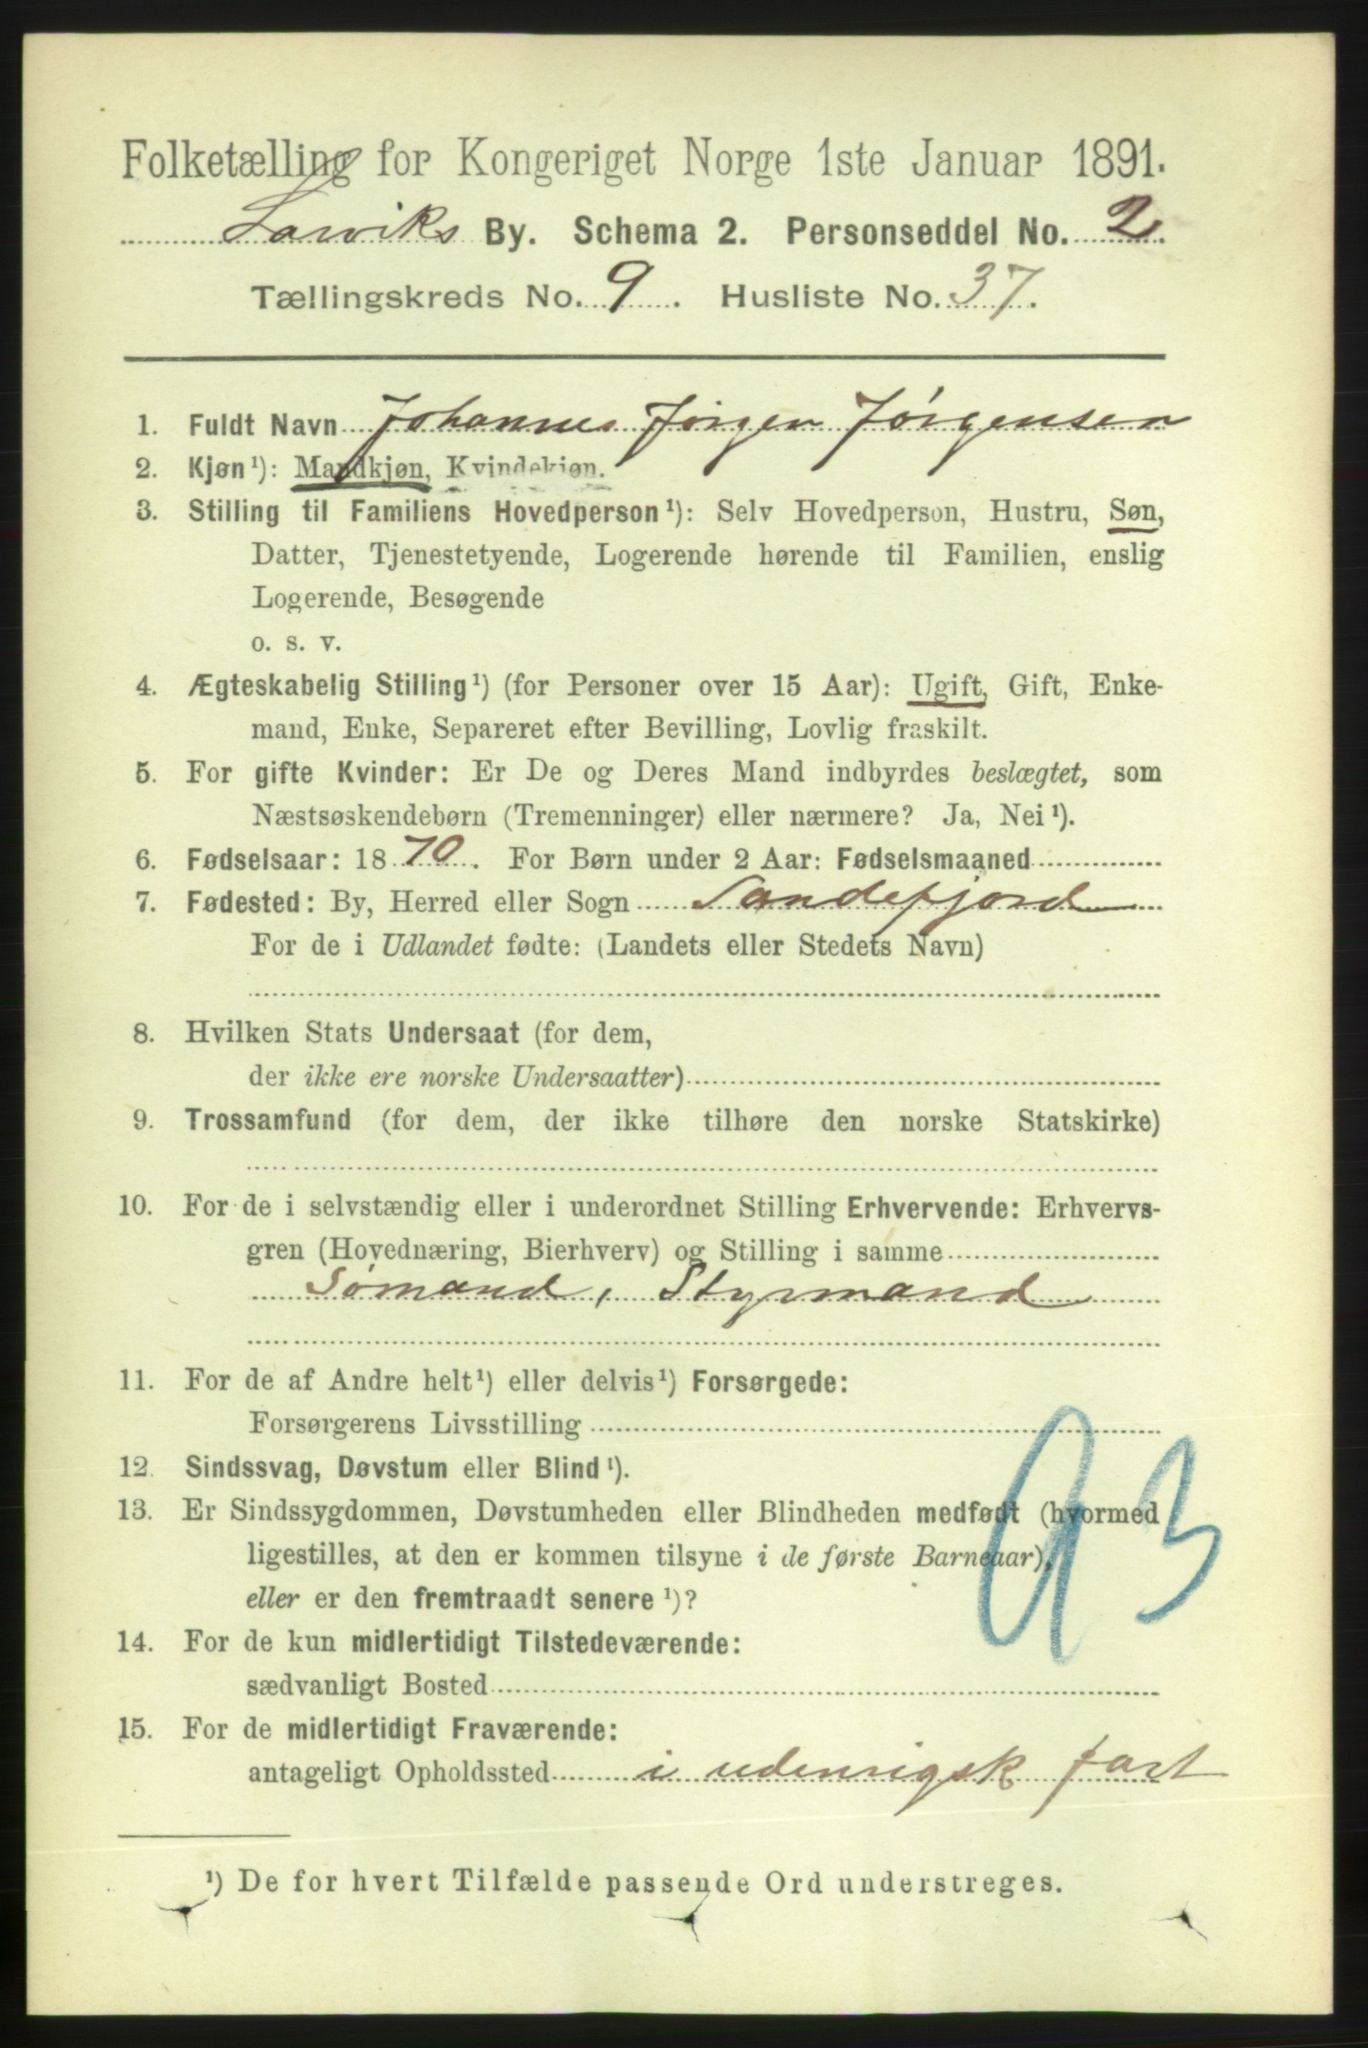 Folketælling for Kongeriget Norge 1ste Januar 1891.
Larviks By. Schema 2. Personseddel No. 2.
Tællingskreds No. 9. Husliste No. 37.
1. Fuldt Navn Johannes Jørgen Jørgensen
2. Kjøn¹): Mandkjøn, Kvindekjøn.
3. Stilling til Familiens Hovedperson¹): Selv Hovedperson, Hustru, Søn,
Datter, Tjenestetyende, Logerende hørende til Familien, enslig
Logerende, Besøgende
o. s. v.
4. Ægteskabelig Stilling¹) (for Personer over 15 Aar): Ugift, Gift, Enke-
mand, Enke, Separeret efter Bevilling, Lovlig fraskilt.
5. For gifte Kvinder: Er De og Deres Mand indbyrdes beslægtet, som
Næstsøskendebørn (Tremenninger) eller nærmere? Ja, Nei¹).
6. Fødselsaar: 1870. For Børn under 2 Aar: Fødselsmaaned
7. Fødested: By, Herred eller Sogn Sandefjord
For de i Udlandet fødte: (Landets eller Stedets Navn)
8. Hvilken Stats Undersaat (for dem,
der ikke ere norske Undersaatter)
9. Trossamfund (for dem, der ikke tilhøre den norske Statskirke)
10. For de i selvstændig eller i underordnet Stilling Erhvervende: Erhvervs-
gren (Hovednæring, Bierhverv) og Stilling i samme
Sømand, Styrmand
11. For de af Andre helt¹) eller delvis¹) Forsørgede:
Forsørgerens Livsstilling
12. Sindssvag, Døvstum eller Blind¹).
13. Er Sindssygdommen, Døvstumheden eller Blindheden medfødt (hvormed
ligestilles, at den er kommen tilsyne i de første Barneaar),
eller er den fremtraadt senere¹)?
93
14. For de kun midlertidigt Tilstedeværende:
sædvanligt Bosted
15. For de midlertidigt Fraværende:
antageligt Opholdssted i udenrigsk fart
¹) De for hvert Tilfælde passende Ord understreges.